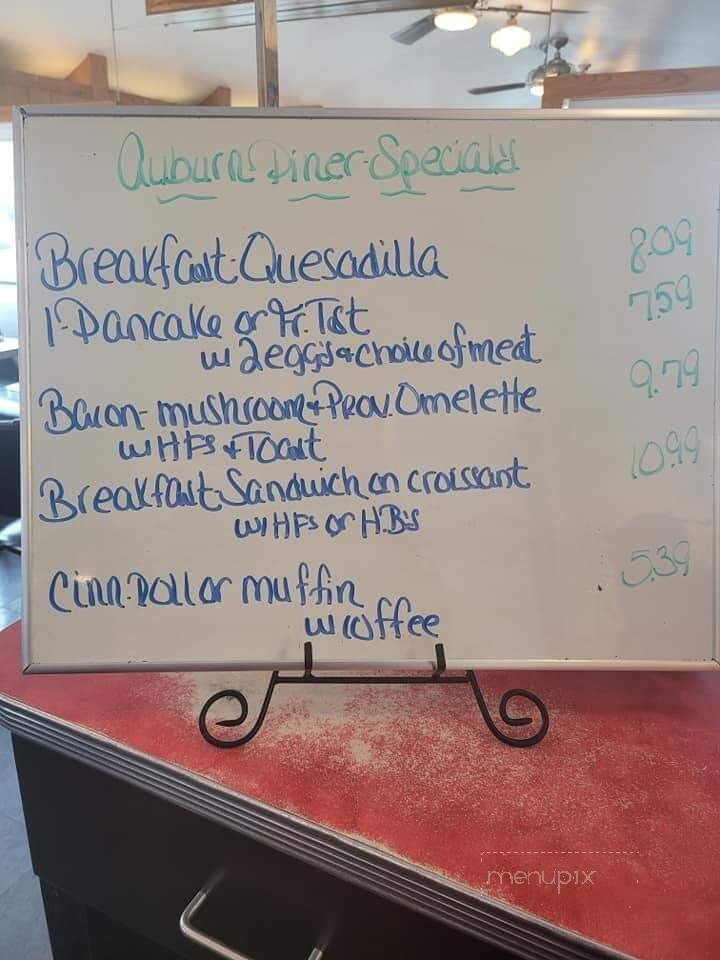 Auburn Diner Specials
Breakfast Quesadilla 8.09
1-Pancake or Fr. Tst 7.59
w 2 eggs + choice of meat
Bacon-mushroom + Prov. Omelette 9.79
w HFs + Toast
Breakfast Sandwich on croissant 10.99
w/HFs or H.B's
Cinn. Roll or muffin 5.39
w coffee
menupix